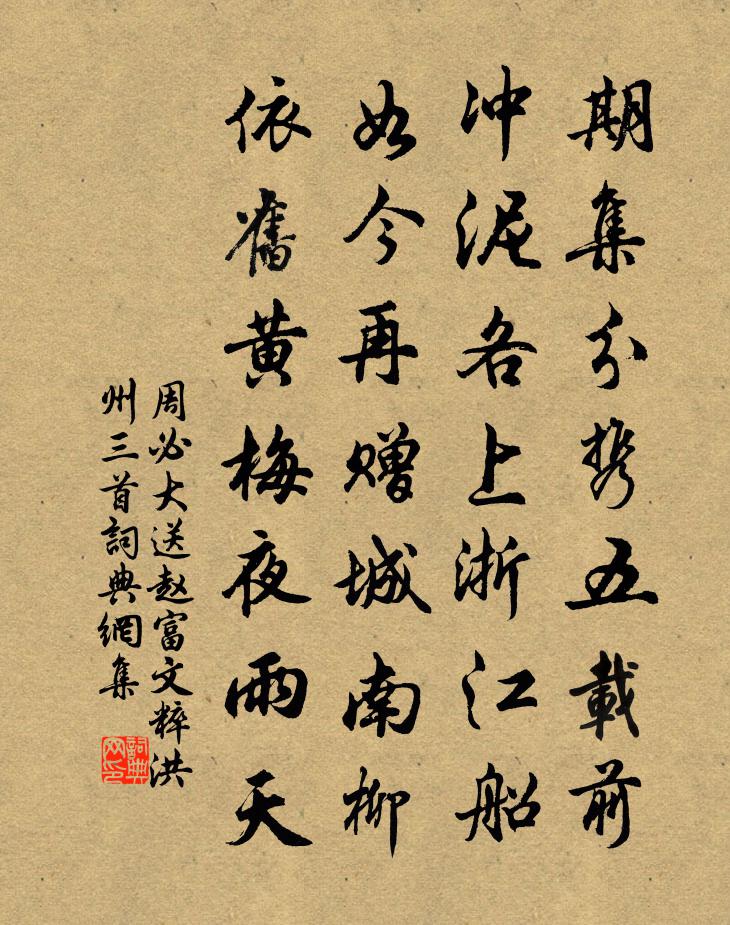 期集分携五載前
冲泥各上浙江船
如今再赠城南柳
依舊黄梅夜雨天
周必大送赵富文粹洪
州三首詞典網集
詞典网印